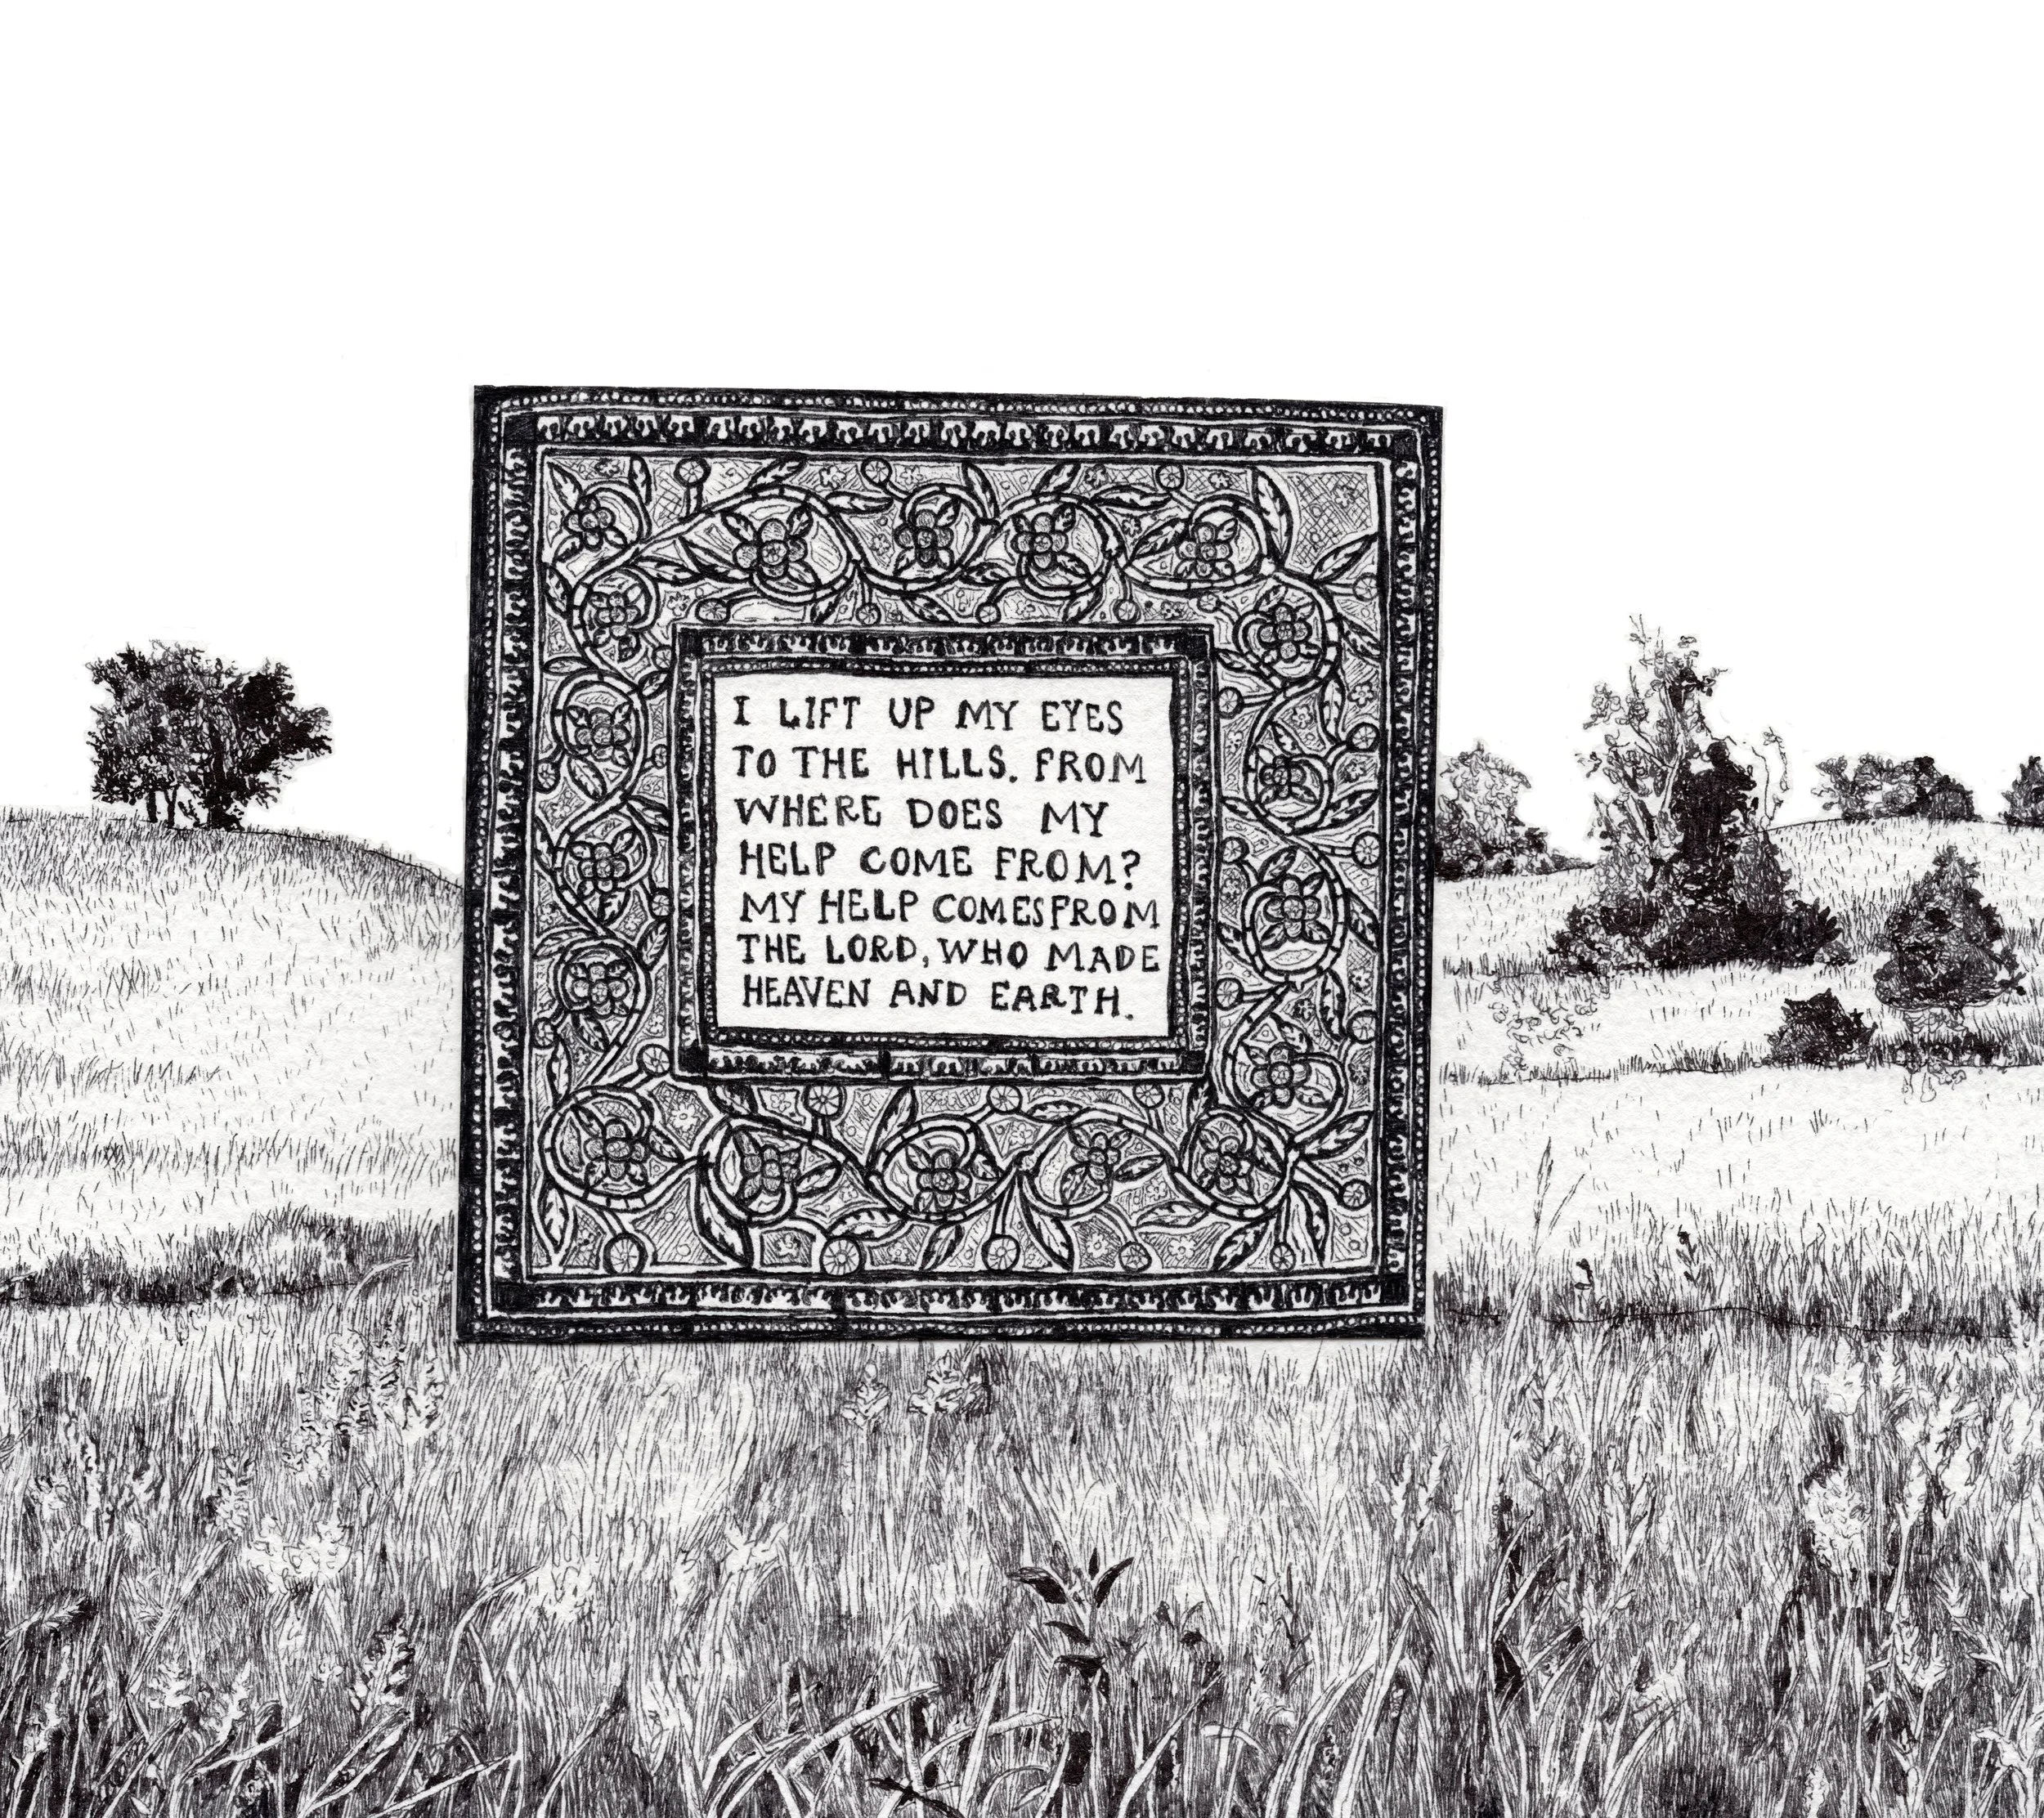 I LIFT UP MY EYES
TO THE HILLS. FROM
WHERE DOES MY
HELP COME FROM?
MY HELP COMES FROM
THE LORD, WHO MADE
HEAVEN AND EARTH.